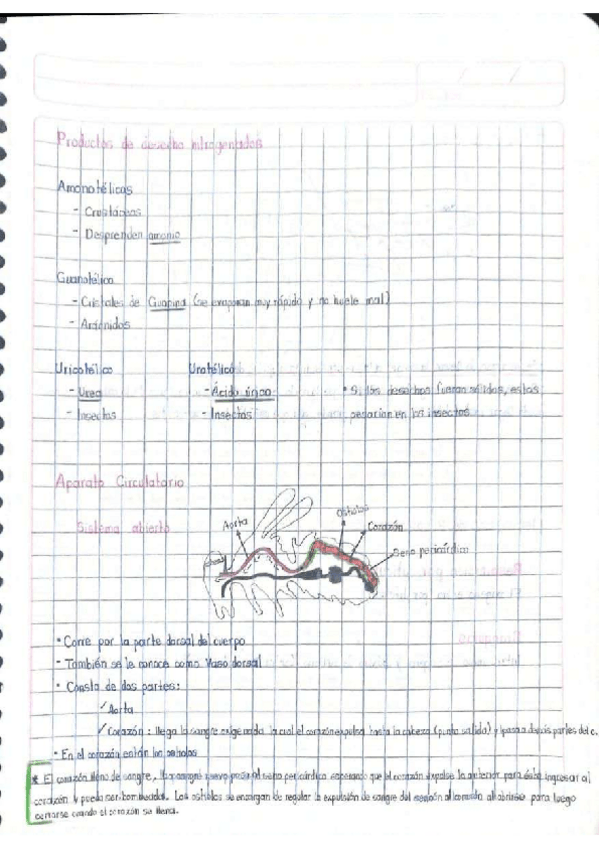 Productos de desecho nitrogenados
Amonotélicos
- Crustáceos
- Desprenden amonio
Guanotélico
- Cristales de Guanina (se evaporan muy rápido y no huele mal)
- Arácnidos
Uricotélico Urotélico
- Urea - Ácido úrico • Si los desechos fueran sólidos, estos
- Insectos - Insectos pesarían en los insectos
Aparato Circulatorio
Sistema abierto
Aorta
Ostiolos
Corazón
Seno pericárdico
• Corre por la parte dorsal del cuerpo
- También se le conoce como Vaso dorsal
• Consta de dos partes:
✓ Aorta
✓ Corazón: llega la sangre oxigenada, la cual el corazón expulsa hasta la cabeza (punto salida) y pasa a demás partes del c.
• En el corazón están los ostiolos
* El corazón lleno de sangre, la sangre nueva pasa al seno pericárdico esperando que el corazón expulse la anterior para ingresar al
corazón y pueda ser bombeada. Los ostiolos se encargan de regular la expulsión de sangre del al corazón al abrirse para luego
cerrarse cuando el corazón se llena.